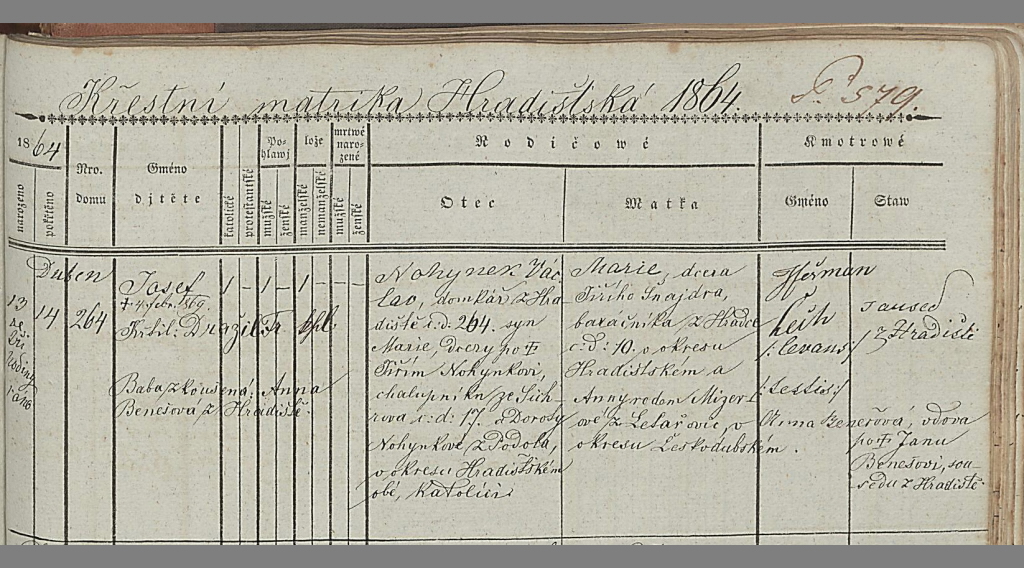 Křestní matrika Hradištská 1864.
P. 579.
1864
narozeno
pokřtěno
Nro. domu
Gméno djtěte
katolické
protestantské
Pohlawj
mužské
ženské
lože
manželské
nemanželské
mrtwě narozené
mužské
ženské
Rodičowé
Otec
Matka
Kmotrowé
Gméno
Staw
Duben
13
14
264
Josef
† 4. febr. 1869
Křtil: Dražil Fr. kpl.
Baba zkoušená: Anna
Benešová z Hradiště.
1 – 1 – 1 – – –
Nohynek Vác-
lav, domkář z Hra-
diště č.d: 264. syn
Marie, dcery po †
Jiřím Nohynkovi,
chalupníku ze Sich-
rova č: d: 17. a Doroty
Nohynkové z Podola,
v okresu Hradištském
obé, Katolíci.
Marie, dcera
Jiřího Šnajdra,
baráčníka z Hradce
č: d: 10. v okresu
Hradištském a
Anny rodem Mizer-
ové z Letařovic, v
okresu Českodubském.
Heřman
/: testis :/
soused
z Hradiště
Anna Benešová, vdova
po † Janu
Benešovi, sou-
sedu z Hradiště